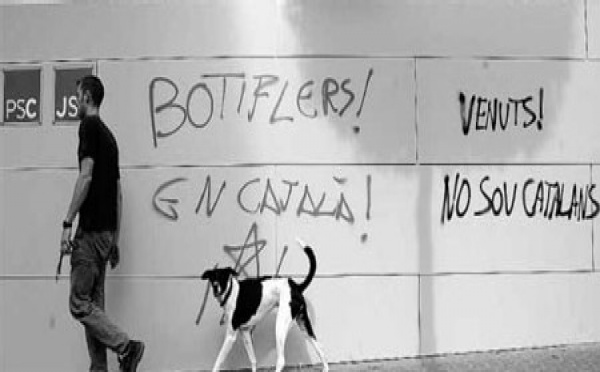 PSC
JS
BOTIFLERS!
EN CATALÀ!
VENUTS!
NO SOU CATALANS